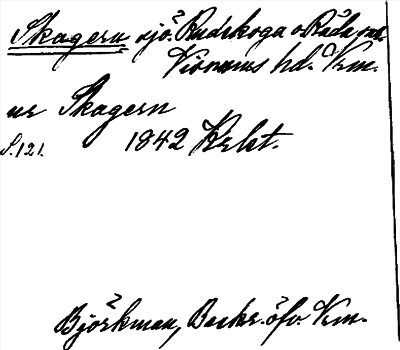 Skagern sjö. Rudskoga o Råda snr
Visnums hd. Vrm.
ur Skagern
S. 121. 1842 Krlst.
Björkman, Beskr. öfv. Vrm.